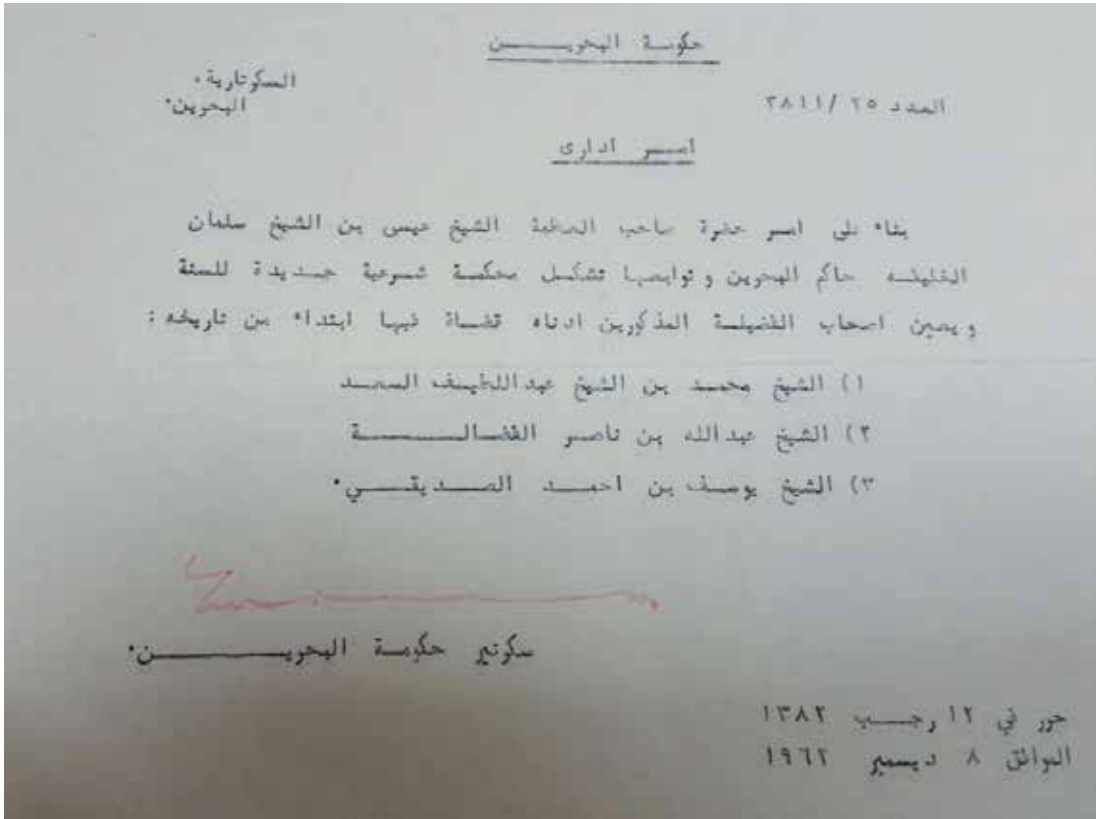 حكومة البحريـــــن
السكرتارية،
البحرين.
العدد ٢٥ /٣٨١١
امـــر ادارى
بناء على امــر حضرة صاحب العظمة الشيخ عيسى بن الشيخ سلمان
الخليفـــه حاكم البحرين و توابعهـا تشكــل محكمــة شـــرعية جـــديدة للسنة
و يعين اصحاب الفضيلــة المذكورين ادناه قضـــاة فيهـا ابتداء من تاريخه :
١) الشيخ محمـــد بن الشيخ عبداللطيــف السعـــد
٢) الشيخ عبدالله بن ناصــر الفضالـــــــة
٣) الشيخ يوســف بن احمـــد الصـــديقـــي.
سكرتير حكومــة البحريــــــــن.
حرر في ١٢ رجـــب ١٣٨٢
الموافق ٨ ديسمبر ١٩٦٢